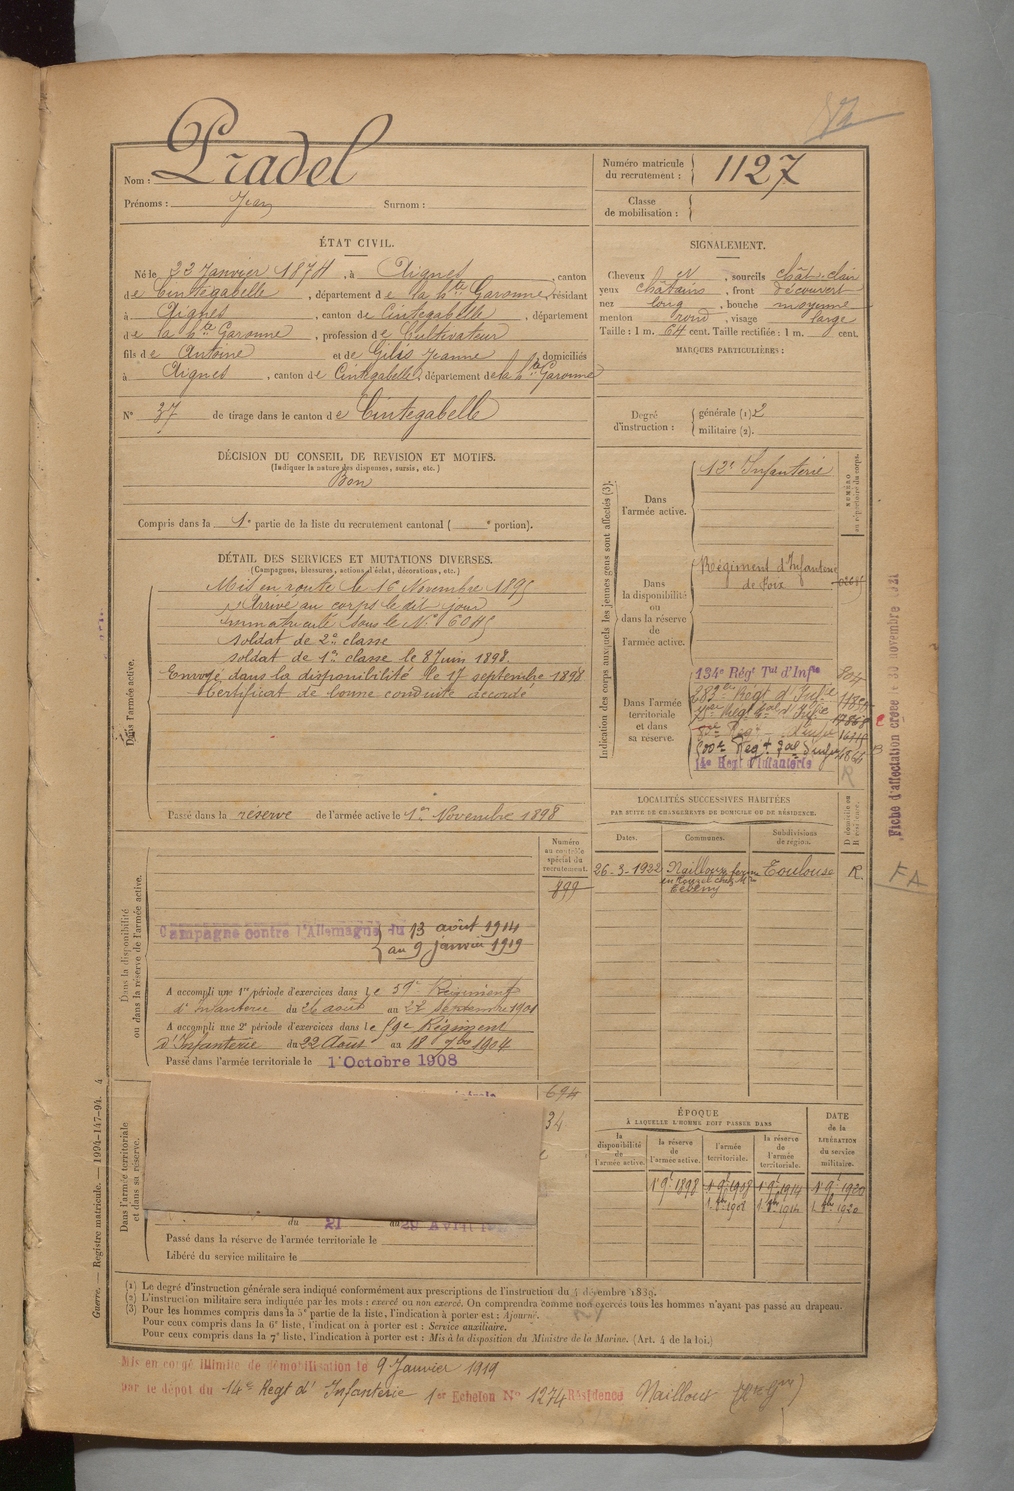 Nom : Pradel
Prénoms : Jean Surnom :
Numéro matricule du recrutement : 1127
Classe de mobilisation :
ÉTAT CIVIL.
Né le 23 Janvier 1874, à Aignes, canton
de Cintegabelle, département de la Hte Garonne, résidant
à Aignes, canton de Cintegabelle, département
de la Hte Garonne, profession de Cultivateur
fils de Antoine et de Gilis Jeanne, domiciliés
à Aignes, canton de Cintegabelle, département de la Hte Garonne
N° 37 de tirage dans le canton de Cintegabelle
SIGNALEMENT.
Cheveux , sourcils chât. clair
yeux châtains, front découvert
nez long, bouche moyenne
menton rond, visage large
Taille : 1 m. 64 cent. Taille rectifiée : 1 m. cent.
MARQUES PARTICULIÈRES :
Degré d'instruction :
générale (1) 2
militaire (2).
DÉCISION DU CONSEIL DE REVISION ET MOTIFS.
(Indiquer la nature des dispenses, sursis, etc.)
Bon
Compris dans la 1e partie de la liste du recrutement cantonal ( e portion).
DÉTAIL DES SERVICES ET MUTATIONS DIVERSES.
(Campagnes, blessures, actions d'éclat, décorations, etc.)
Dans l'armée active.
Mis en route le 16 Novembre 1895
Arrivé au corps le dit jour
immatriculé sous le N° 6045
soldat de 2e classe
soldat de 1re classe le 8 Juin 1898.
Envoyé dans la disponibilité le 17 septembre 1898
Certificat de bonne conduite accordé
Passé dans la réserve de l'armée active le 1er Novembre 1898
Indication des corps auxquels les jeunes gens sont affectés (3).
NUMÉRO au répertoire du corps.
Dans l'armée active.
12e Infanterie
Dans la disponibilité ou dans la réserve de l'armée active.
Régiment d'Infanterie
de Foix
Dans l'armée territoriale et dans sa réserve.
134e Régt Tal d'Infie
283e Régt d'Infie
200e Regt Tal d'Infie
14e Regt d'Infanterie
Fiche d'affectation créée le 30 novembre 1921
FA
LOCALITÉS SUCCESSIVES HABITÉES
PAR SUITE DE CHANGEMENTS DE DOMICILE OU DE RÉSIDENCE.
Dates. Communes. Subdivisions de région. D domicile ou R résidence.
26-3-1922 Nailloux Toulouse R.
Dans la disponibilité ou dans la réserve de l'armée active.
Numéro au contrôle spécial du recrutement.
899
Campagne contre l'Allemagne du 13 août 1914
au 9 janvier 1919
A accompli une 1re période d'exercices dans le 59e Régiment
d'Infanterie du 26 août au 22 Septembre 1901
A accompli une 2e période d'exercices dans le 59e Régiment
d'Infanterie du 22 Août au 18 7bre 1904
Passé dans l'armée territoriale le 1 Octobre 1908
Dans l'armée territoriale et dans sa réserve.
694
34
du 21 au 29 Avril
Passé dans la réserve de l'armée territoriale le
Libéré du service militaire le
ÉPOQUE
À LAQUELLE L'HOMME DOIT PASSER DANS
la disponibilité de l'armée active. la réserve de l'armée active. l'armée territoriale. la réserve de l'armée territoriale. DATE de la LIBÉRATION du service militaire.
1 9e 1898 1 9e 1908 1 9e 1914 1 9e 1920
(1) Le degré d'instruction générale sera indiqué conformément aux prescriptions de l'instruction du 4 décembre 1889.
(2) L'instruction militaire sera indiquée par les mots : exercé ou non exercé. On comprendra comme non exercés tous les hommes n'ayant pas passé au drapeau.
(3) Pour les hommes compris dans la 5e partie de la liste, l'indication à porter est : Ajourné.
Pour ceux compris dans la 6e liste, l'indication à porter est : Service auxiliaire.
Pour ceux compris dans la 7e liste, l'indication à porter est : Mis à la disposition du Ministre de la Marine. (Art. 4 de la loi.)
Guerre. — Registre matricule. — 1994-147-94. 4
Mis en congé illimité de démobilisation le 9 Janvier 1919
par le dépôt du 14e Regt d'Infanterie 1er Echelon N° 1274 Résidence Nailloux